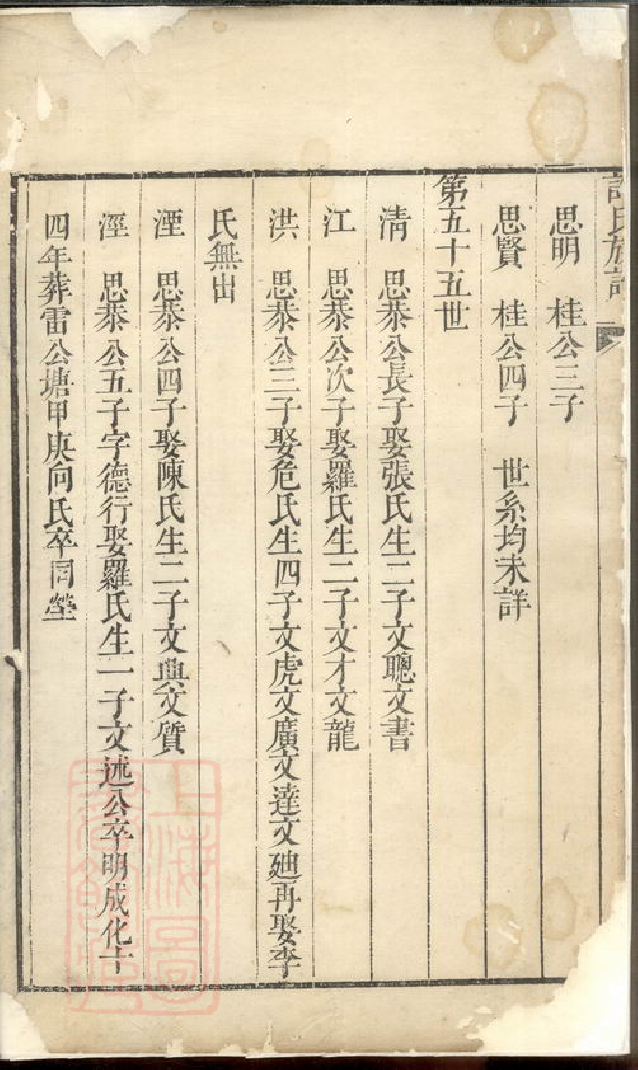 許氏族譜
思明　桂公三子
思賢　桂公四子　世系均未詳
第五十五世
清　思恭公長子娶張氏生二子文聰文書
江　思恭公次子娶羅氏生二子文才文龍
洪　思恭公三子娶危氏生四子文虎文廣文達文廸再娶李
氏無出
湮　思恭公四子娶陳氏生二子文典文質
涇　思恭公五子字德行娶羅氏生一子文述公卒明成化十
四年葬雷公塘甲庚向氏卒同塋
上海圖書館藏